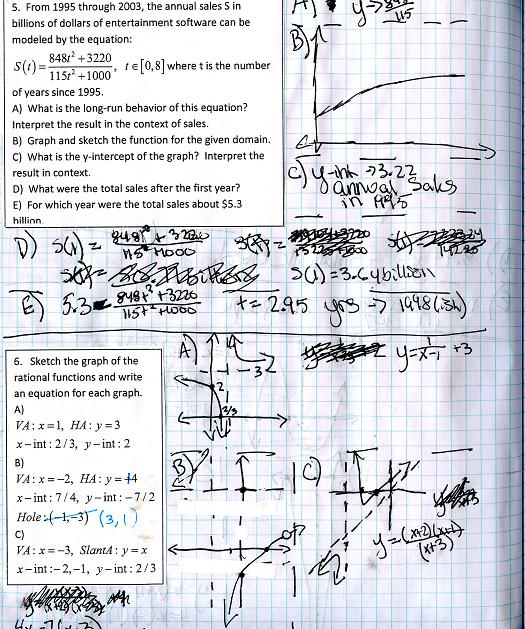 5. From 1995 through 2003, the annual sales S in
billions of dollars of entertainment software can be
modeled by the equation:
S(t)= (848t²+3220)/(115t²+1000), t∈[0,8] where t is the number
of years since 1995.
A) What is the long-run behavior of this equation?
Interpret the result in the context of sales.
B) Graph and sketch the function for the given domain.
C) What is the y-intercept of the graph? Interpret the
result in context.
D) What were the total sales after the first year?
E) For which year were the total sales about $5.3
billion
A) y→ 848/115
B)
C) y-int →3.22
annual sales
in 1995
D) S(1) = (848t² + 3220)/(115t²+1000)
S(1)=3.64 billion
E) 5.3 = (848t²+3220)/(115t²+1000) t=2.95 yrs → 1998(ish)
6. Sketch the graph of the
rational functions and write
an equation for each graph.
A)
VA: x=1, HA: y=3
x-int: 2/3, y-int: 2
B)
VA: x=-2, HA: y=4
x-int: 7/4, y-int: -7/2
Hole: (-1,-3) (3,1)
C)
VA: x=-3, SlantA: y=x
x-int: -2,-1, y-int: 2/3
A) 2 2/3
y= 1/(x-1) +3
B)
C) y= (x+2)(x+1)/(x+3)